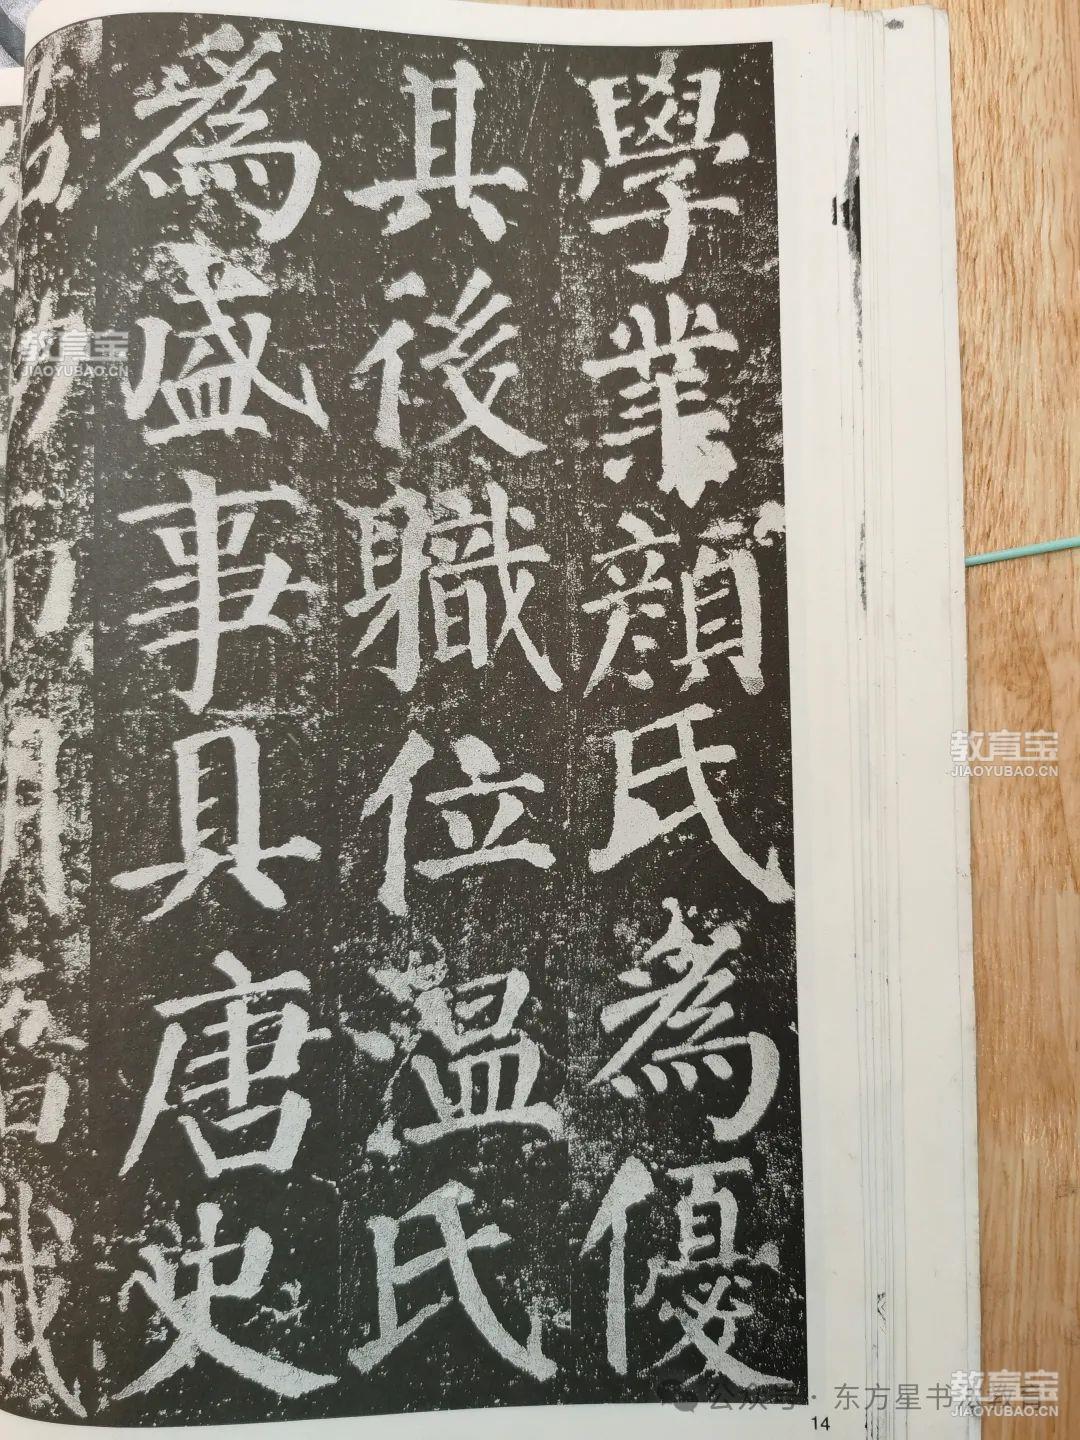 學業顔氏為優
其後軄位温氏
為盛事具唐史
14
教育宝
JIAOYUBAO.CN
教育宝
JIAOYUBAO.CN
公众号 · 东方星书
教育宝
JIAOYUBAO.CN